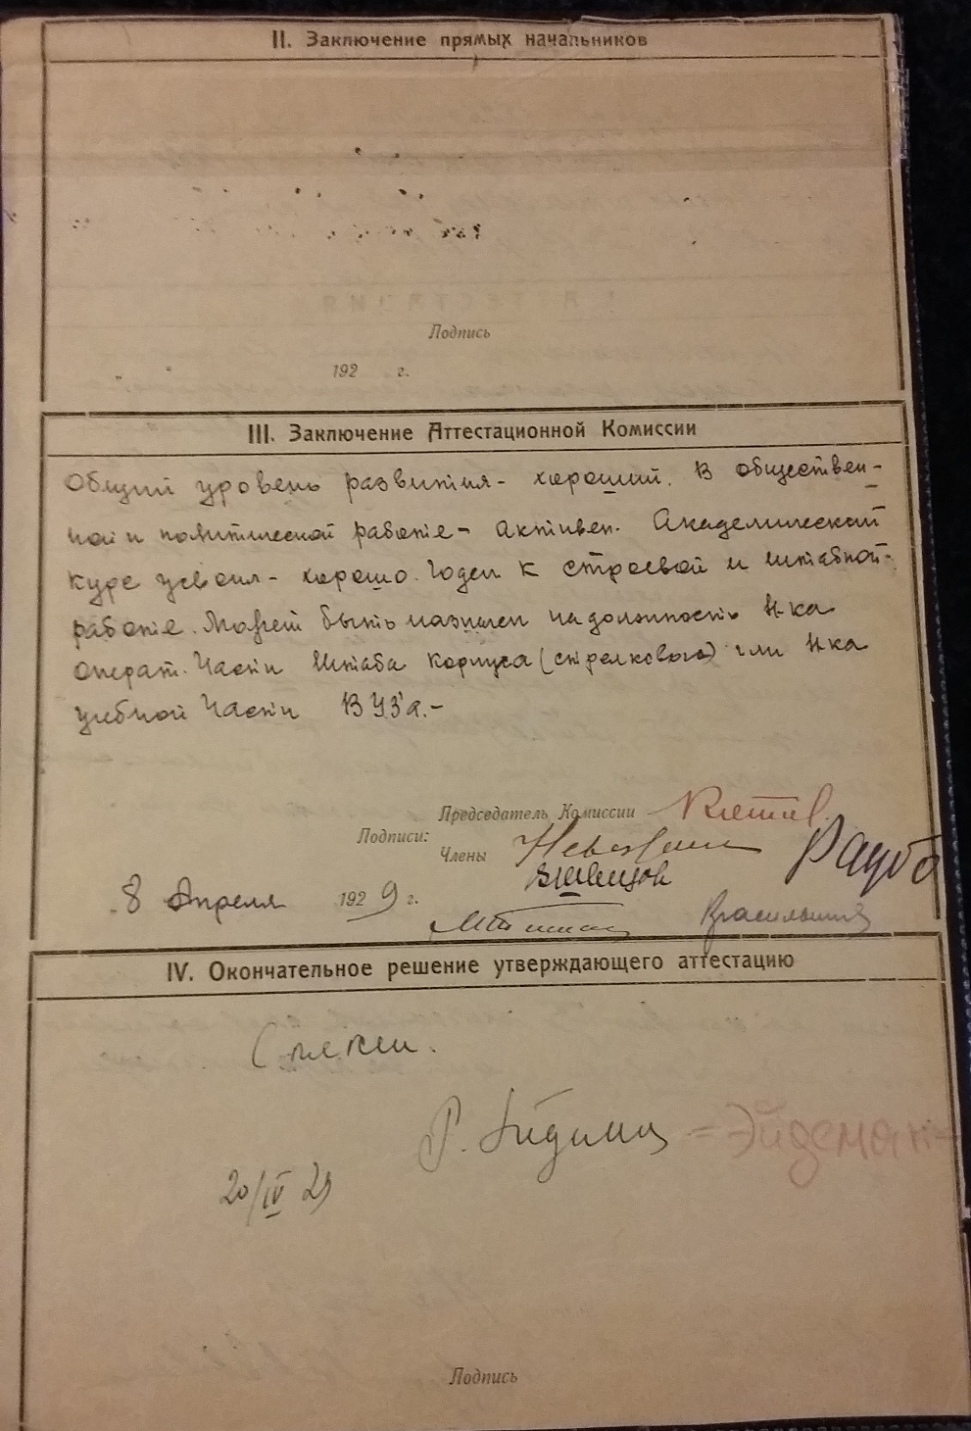 II. Заключение прямых начальников
Подпись
192 г.
III. Заключение Аттестационной Комиссии
Общий уровень развития - хороший. В обществен-
ной и политической работе - активен. Академический
курс усвоил - хорошо. Годен к строевой и штабной
работе. Может быть назначен на должность Н-ка
операт. Части Штаба Корпуса (стрелкового) или Н-ка
учебной Части ВУЗ'а.-
Председатель Комиссии
Подписи:
Члены
8 Апреля 1929 г.
IV. Окончательное решение утверждающего аттестацию
Р. Эйдеман = Эйдеман =
20/IV 29
Подпись